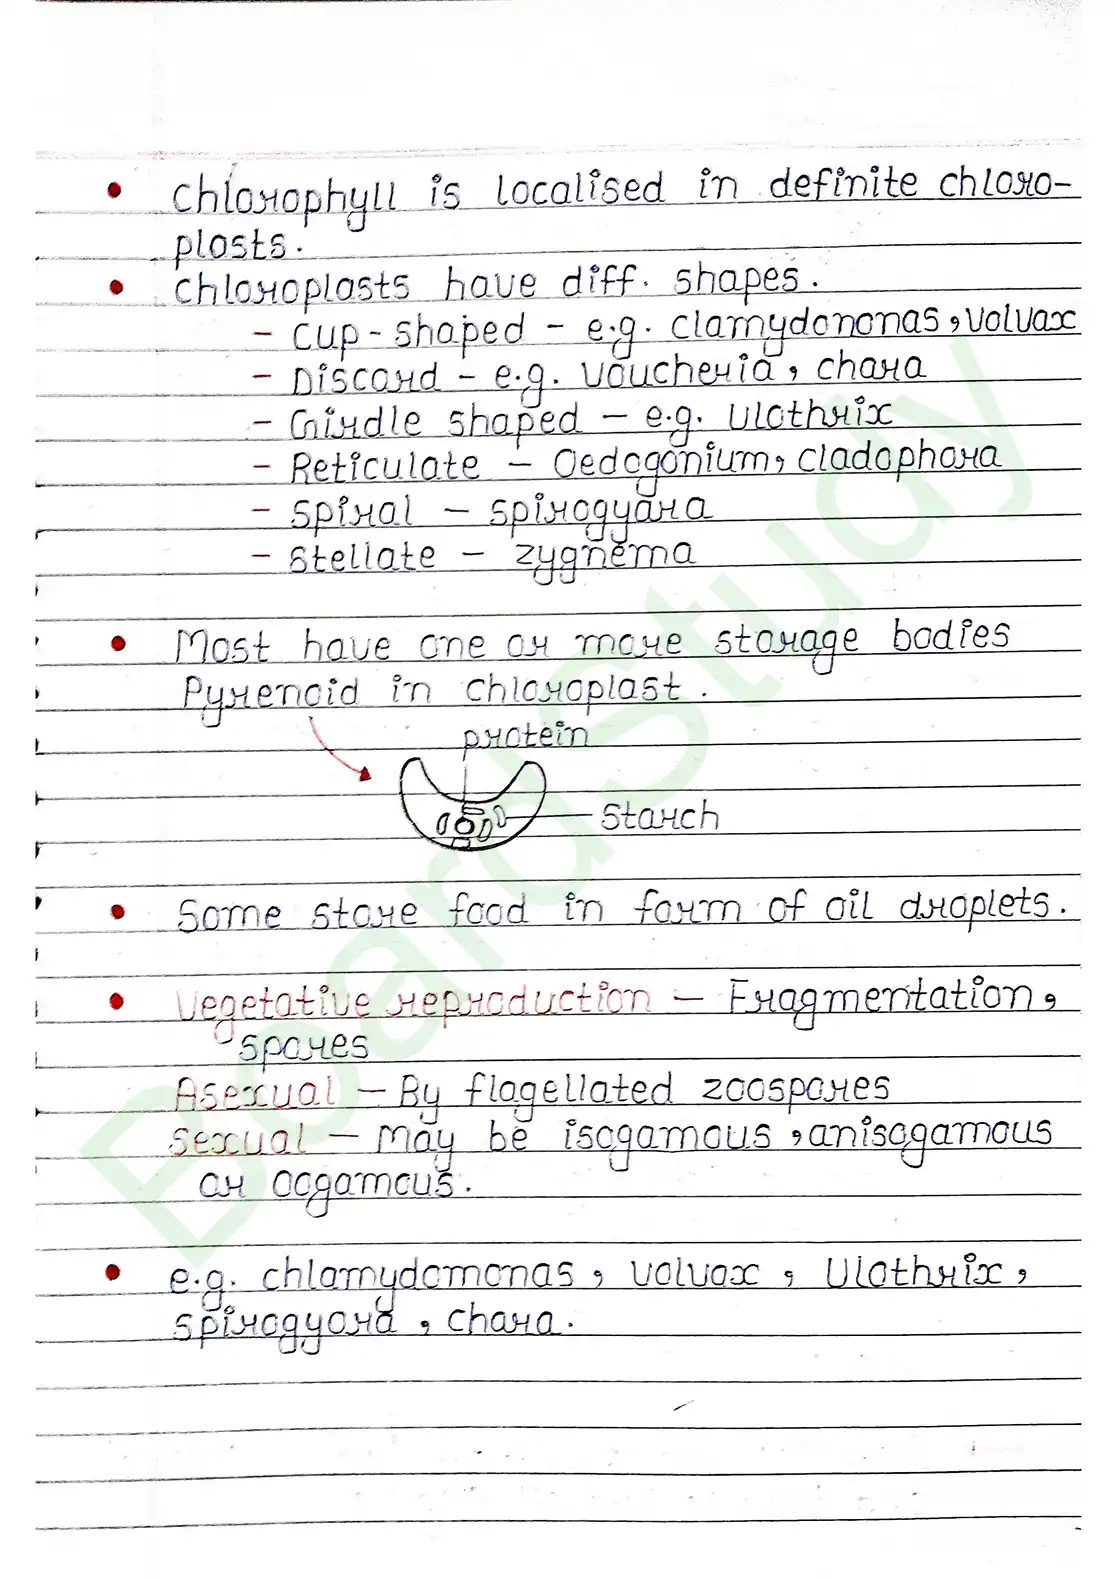 • Chlorophyll is localised in definite chloro-
plasts.
• Chloroplasts have diff. shapes.
- Cup-shaped - e.g. Clamydononas, Volvax
- Discord - e.g. Vaucheria, chara
- Girdle shaped - e.g. Ulothrix
- Reticulate - Oedogonium, cladophora
- Spiral - Spirogyara
- Stellate - Zygnema
• Most have one or more storage bodies
Pyrenoid in chloroplast.
protein
Starch
• Some store food in form of oil droplets.
• Vegetative reproduction - Fragmentation,
spores
Asexual - By flagellated zoospores
Sexual - May be isogamous, anisogamous
or oogamous.
• e.g. chlamydomonas, volvox, Ulothrix,
spirogyora, chara.
BoardStudy